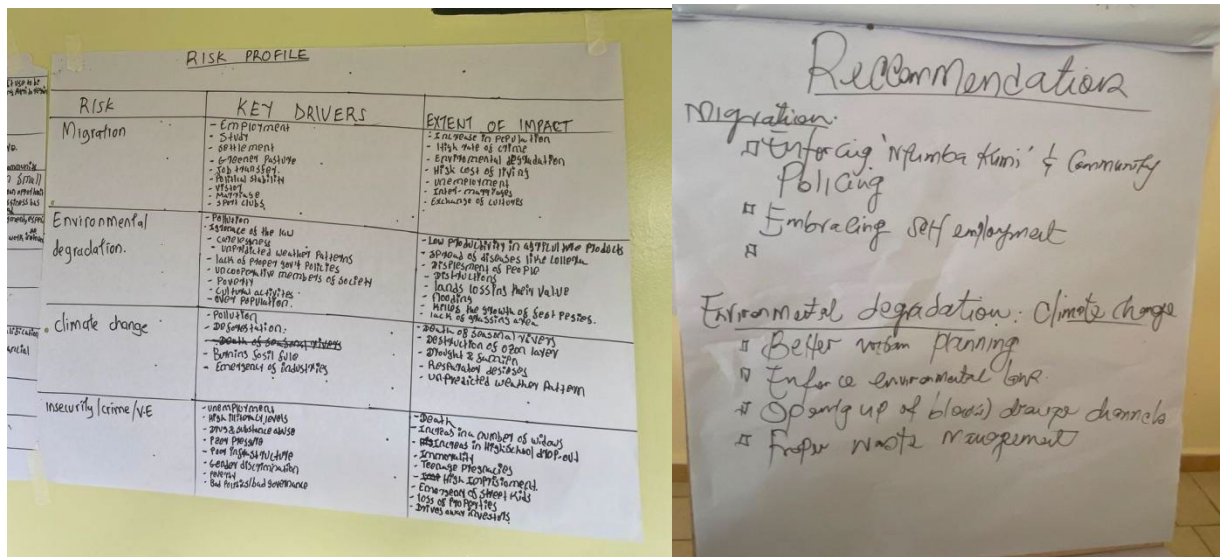 RISK PROFILE
RISK
KEY DRIVERS
EXTENT OF IMPACT
Migration
- Employment
- Study
- Settlement
- Greener Pasture
- Job transfer.
- Political stability
- Vistor
- Marriage
- Sport clubs.
- Increase in population
- High rate of crime
- Enviromental degradation
- High cost of living
- Unemployment
- Inter-marriages
- Exchange of cultures
Environmental
degradation.
- Pollution
- Ignorace of the law
- Carelesness
- Unpredicted weather Patterns
- lack of proper gov't Policies
- uncooperative members of society
- Poverty
- Cultural activites
- Over population.
- Low productivity in agriculture products
- Spread of diseases like
- of People
- Distructions
- lands lossing their value
- flooding
- the growth of
- lack of grassing area
Climate change
- Pollution
- Deforestation.
- Death of seasonal rivers
- Burning fosil
- Emergency of industries
- Death of seasonal rivers
- Destruction of ozon layer
- Drought &
- desises
- Unpredicted weather Pattern
Insecurity/crime/V.E
- unemployment
- High levels
- Drug & substance abuse
- Peer Pressure
- Poor infrastructure
- Gender discrimination
- Poverty
- Bad Policies/bad governance
- Death
- Increas in a number of widows
- Increas in High school drop-out
- Immorality
- Teenage Pregnacies
- High
- Emergency of street kids
- loss of Properties
- Drives away investors
Recommendation
Migration.
Enforcig 'Nyumba Kumi' & Community
Policing
Embracing self employment
Environmental degradation: Climate change
Better urban planning
Enforce environmental laws
Openig up of drainage channels
Proper waste management